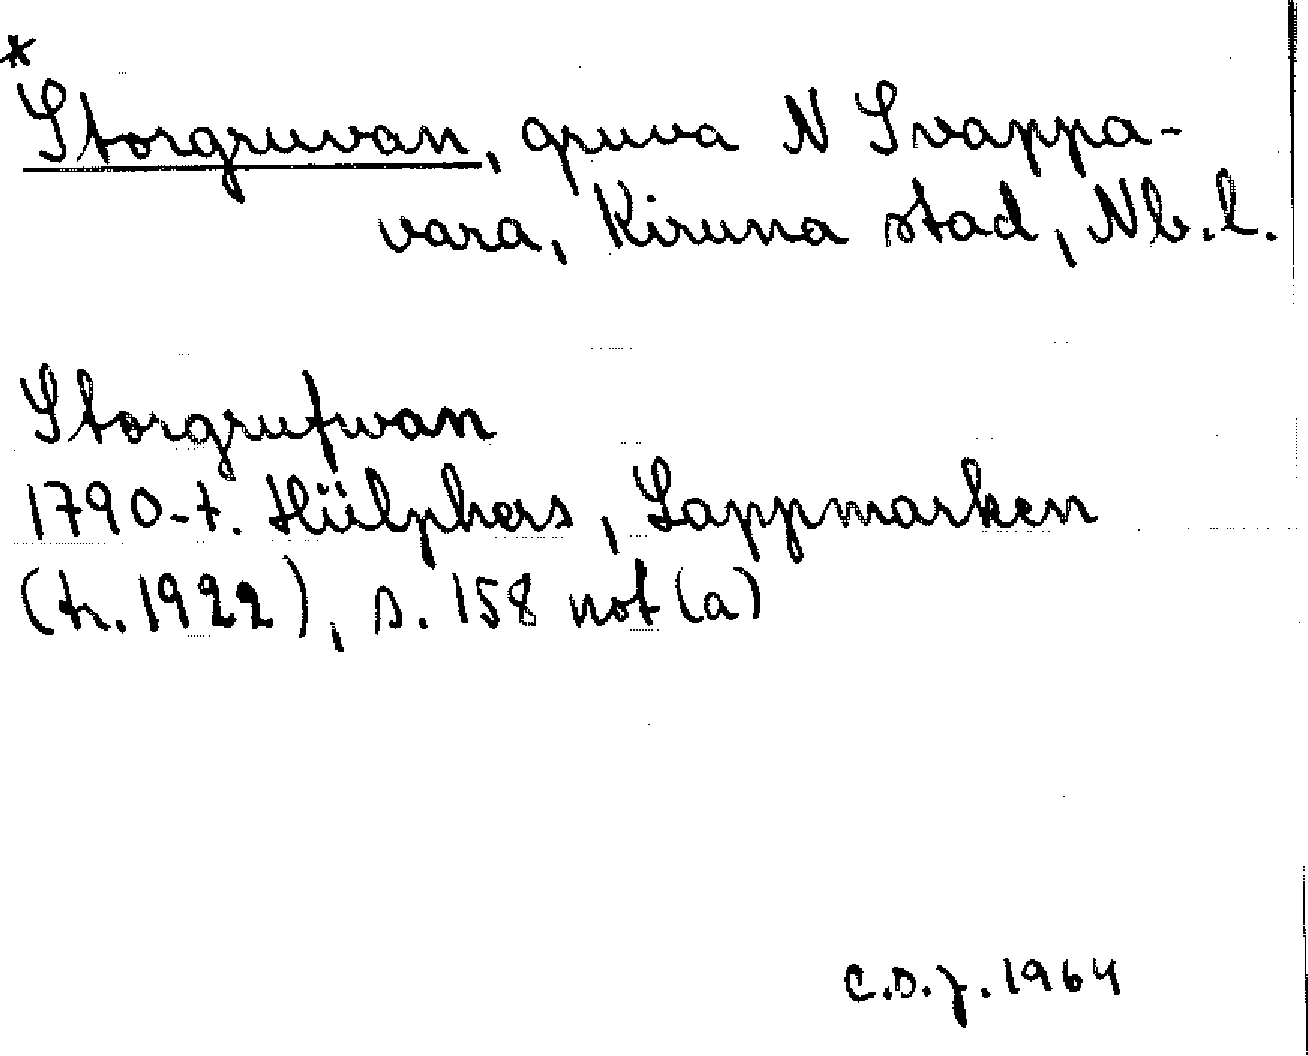 *
Storgruvan, gruva N Svappa-
vara, Kiruna stad, Nb.l.
Storgrufwan
1790-t. Hülphers, Lappmarken
(tr. 1922), s. 158 not (a)
C.S.J. 1964